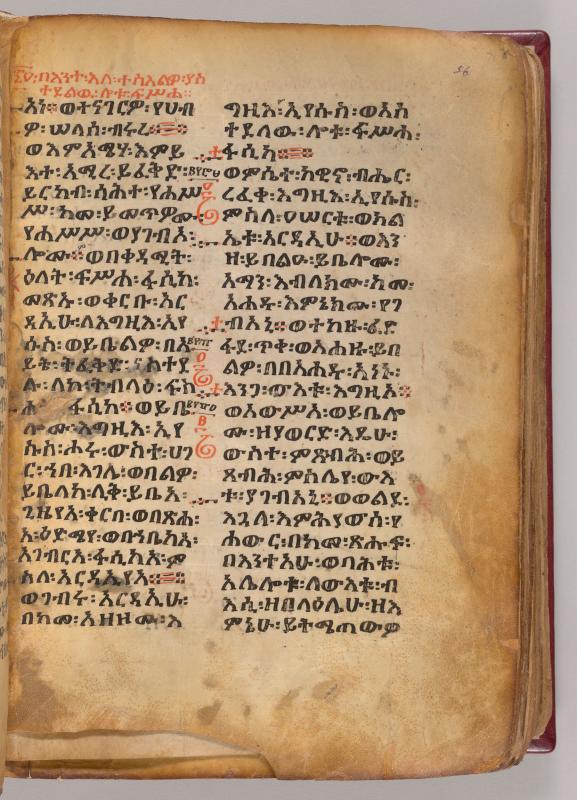 56
፷፬፡በእንተ፡እለ፡ተስእልዎ፡ያስ
ተደልው፡ሎቱ፡ፍሥሐ፡፡
እነ፡፡ወተናገርዎ፡የሀብ
ዎ፡ሠላሰ፡ብሩረ፡፡
ወእምአሜሃ፡እምይ
እተ፡አሚረ፡ይፈቅድ፡
ይርከብ፡ሳሕተ፡የሐሥ
ሥ፡ከመ፡ይመጥዎሙ፡
የሐሥሥ፡ወያገብእ፡
ሎሙ፡፡ወበቀዳሚት፡
ዕለት፡ፍሥሕ፡ፋሲካ፡
መጽኡ፡ወቀርቡ፡አር
ዳኢሁ፡ለእግዚእ፡ኢየ
ሱስ፡ወይቤልዎ፡በአ
ይቴ፡ትፈቅድ፡ናስተደ
ሉ፡ለከ፡ትብላዕ፡ፍሥ
ሐ፡ ፋሲካ፡፡ወይቤ
ሎሙ፡እግዚእ፡ኢየ
ሱስ፡ሑሩ፡ውስተ፡ሀገ
ር፡ኀበ፡እገሌ፡ወበልዎ፡
ይቤለከ፡ሊቅ፡ይቤ
ጊዜየአ፡ቀርበ፡ወበጽሐ፡
አ፡ዕድሜየ፡ወበኀቤከአ፡
እገብርአ፡ፋሲካአ፡ም
ስለ፡አርዳኢየአ፡፡
ወገብሩ፡አርዳኢሁ፡
በከመ፡አዘዞሙ፡እ
ግዚእ፡ኢየሱስ፡ወአስ
ተደለው፡ሎቱ፡ፍሥሐ፡
ፋሲካ፡፡
ወምሴተ፡ከዊኖ፡ብሔር፡
ረፈቀ፡እግዚእ፡ኢየሱስ፡
ምስለ፡፲ወ፪ቱ፡ወክል
ኤቱ፡አርዳኢሁ፡፡ወእን
ዘ፡ይበልዑ፡ይቤሎሙ፡
አማን፡እብለክሙ፡ከመ፡
አሐዱ፡እምኔክሙ፡ያገ
ብአኒ፡፡ወተከዙ፡ፈድ
ፋደ፡ጥቀ፡ወአኀዙ፡ይበ
ልዎ፡በበአሐዱ፡አንኑ፡
እንጋ፡ውእቱ፡እግዚኦ፡፡
ወአውሥአ፡ወይቤሎ
ሙ፡ዘያወርድ፡እዴሁ፡
ውስተ፡ምጽብሕ፡ወይ
ጸብሕ፡ምስሌየ፡ውእ
ቱ፡ያገብአኒ፡፡ወወልደ፡
እጓለ፡እምሕያውሰ፡የ
ሐውር፡በከመ፡ጽሑፍ፡
በእንተአሁ፡ወባሕቱ፡
አሌሎቱ፡ለውእቱ፡ብ
እሲ፡ዘበላዕሌሁ፡ዘእ
ምኔሁ፡ይትሜጠውዎ